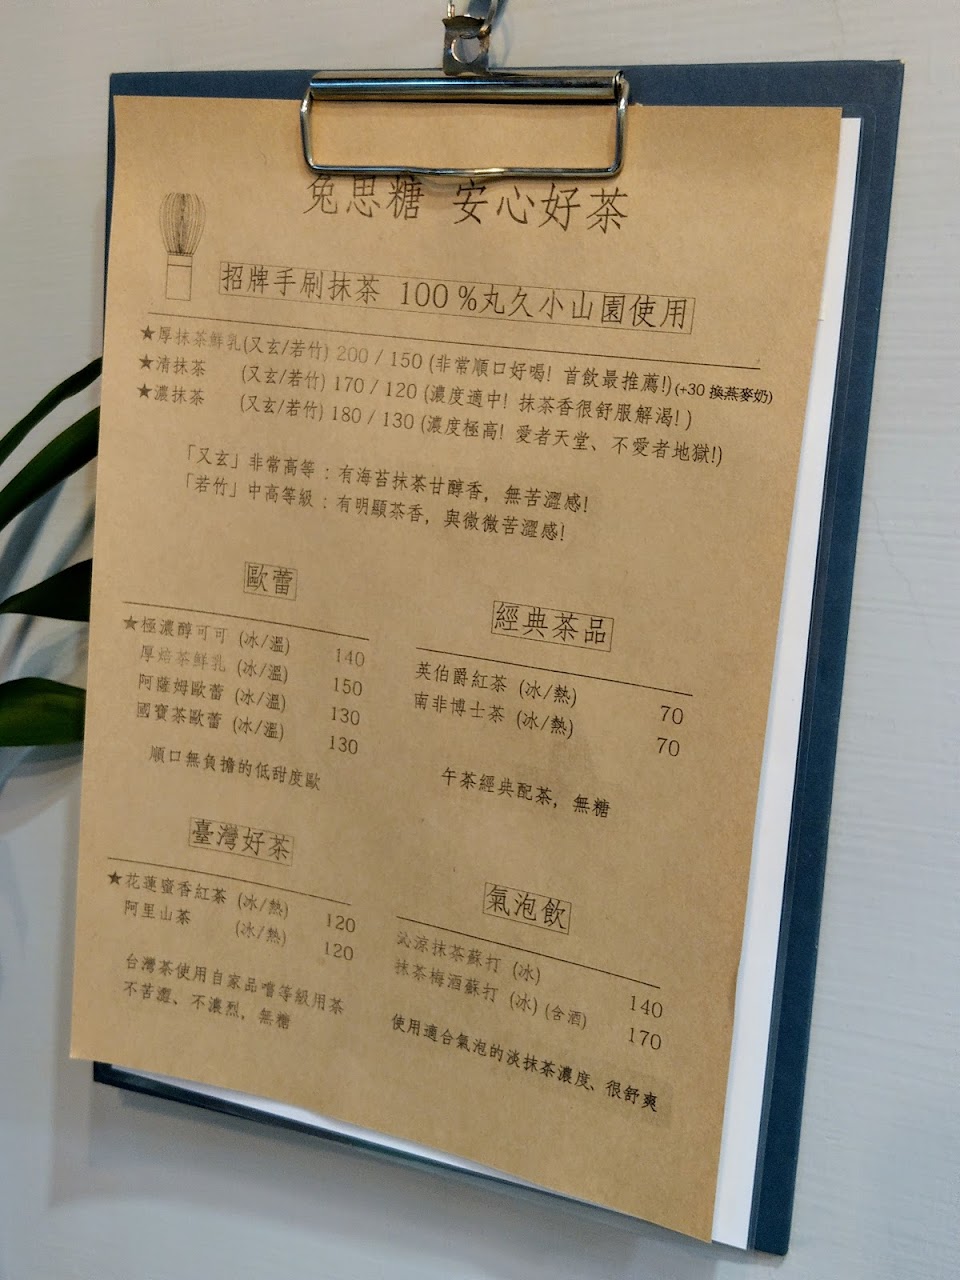 兔思糖 安心好茶
招牌手刷抹茶 100%丸久小山園使用
★厚抹茶鮮乳(又玄/若竹) 200 / 150 (非常順口好喝! 首飲最推薦!)(+30 換燕麥奶)
★清抹茶 (又玄/若竹) 170 / 120 (濃度適中! 抹茶香很舒服解渴! )
★濃抹茶 (又玄/若竹) 180 / 130 (濃度極高! 愛者天堂、不愛者地獄!)
「又玄」非常高等 : 有海苔抹茶甘醇香, 無苦澀感!
「若竹」中高等級 : 有明顯茶香, 與微微苦澀感!
歐蕾
★極濃醇可可 (冰/溫) 140
厚焙茶鮮乳 (冰/溫) 150
阿薩姆歐蕾 (冰/溫) 130
國寶茶歐蕾 (冰/溫) 130
順口無負擔的低甜度歐
經典茶品
英伯爵紅茶 (冰/熱) 70
南非博士茶 (冰/熱) 70
午茶經典配茶, 無糖
臺灣好茶
★花蓮蜜香紅茶 (冰/熱) 120
阿里山茶 (冰/熱) 120
台灣茶使用自家品嚐等級用茶
不苦澀、不濃烈, 無糖
氣泡飲
沁涼抹茶蘇打 (冰) 140
抹茶梅酒蘇打 (冰) (含酒) 170
使用適合氣泡的淡抹茶濃度、很舒爽